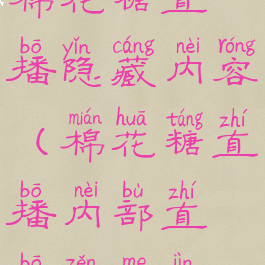 棉花糖直
bō yǐn cáng nèi róng
播隐藏内容
mián huā táng zhí
(棉花糖直
bō nèi bù zhí
播内部直
bō zěn me jìn